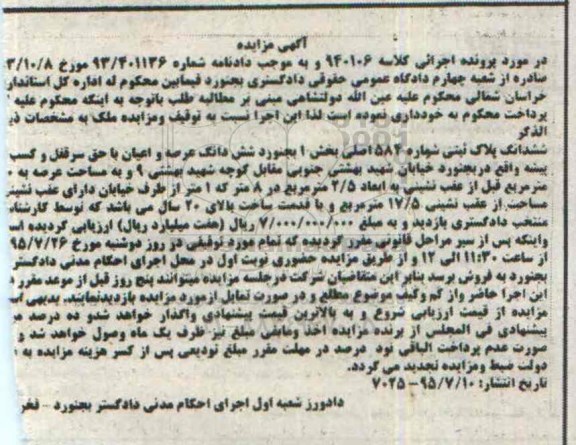 آگهی مزایده
در مورد پرونده اجرائی کلاسه ۹۴۰۱۰۶ و به موجب دادنامه شماره ۹۳/۴۰۱۱۳۶ مورخ ۳/۱۰/۸
صادره از شعبه چهارم دادگاه عمومی حقوقی دادگستری بجنورد فیمابین محکوم له اداره کل استاندار
خراسان شمالی محکوم علیه عین الله دولتشاهی مبنی بر مطالبه طلب باتوجه به اینکه محکوم علیه
پرداخت محکوم به خودداری نموده است لذا این اجرا نسبت به توقیف ومزایده ملک به مشخصات ذی
الذکر
ششدانگ پلاک ثبتی شماره ۵۸۴ اصلی بخش ۱ بجنورد شش دانگ عرصه و اعیان با حق سرقفل و کسب
پیشه واقع دربجنورد خیابان شهید بهشتی جنوبی مقابل کوچه شهید بهشتی ۹ و به مساحت عرصه به
مترمربع قبل از عقب نشینی به ابعاد ۲/۵ مترمربع در ۸ متر که ۱ متر از طرف خیابان دارای عقب نشینی
مساحت از عقب نشینی ۱۷/۵ مترمربع و با قدمت ساخت بالای ۲۰ سال می باشد که توسط کارشنا
منتخب دادگستری بازدید و به مبلغ ۷/۰۰۰/۰۰۰/۰۰۰ ریال (هفت میلیارد ریال) ارزیابی گردیده اس
واینکه پس از سیر مراحل قانونی مقرر گردیده که تمام مورد توقیفی در روز دوشنبه مورخ ۹۵/۷/۲۶
از ساعت ۱۱:۳۰ الی ۱۲ و از طریق مزایده حضوری نوبت اول در محل اجرای احکام مدنی دادگستر
بجنورد به فروش برسد بنابر این متقاضیان شرکت درجلسه مزایده میتوانند پنج روز قبل از موعد مقرر د
این اجرا حاضر واز کم وکیف موضوع مطلع و در صورت تمایل ازمورد مزایده بازدیدنمایند. بدیهی اس
مزایده از قیمت ارزیابی شروع و به بالاترین قیمت پیشنهادی واگذار خواهد شدو ده درصد
پیشنهادی فی المجلس از برنده مزایده اخذ ومابقی مبلغ نیز ظرف یک ماه وصول خواهد شد و
صورت عدم پرداخت الباقی نود درصد در مهلت مقرر مبلغ تودیعی پس از کسر هزینه مزایده به
دولت ضبط ومزایده تجدید می گردد.
تاریخ انتشار: ۹۵/۷/۱۰ – ۷۰۲۵
دادورز شعبه اول اجرای احکام مدنی دادگستر بجنورد – فخر